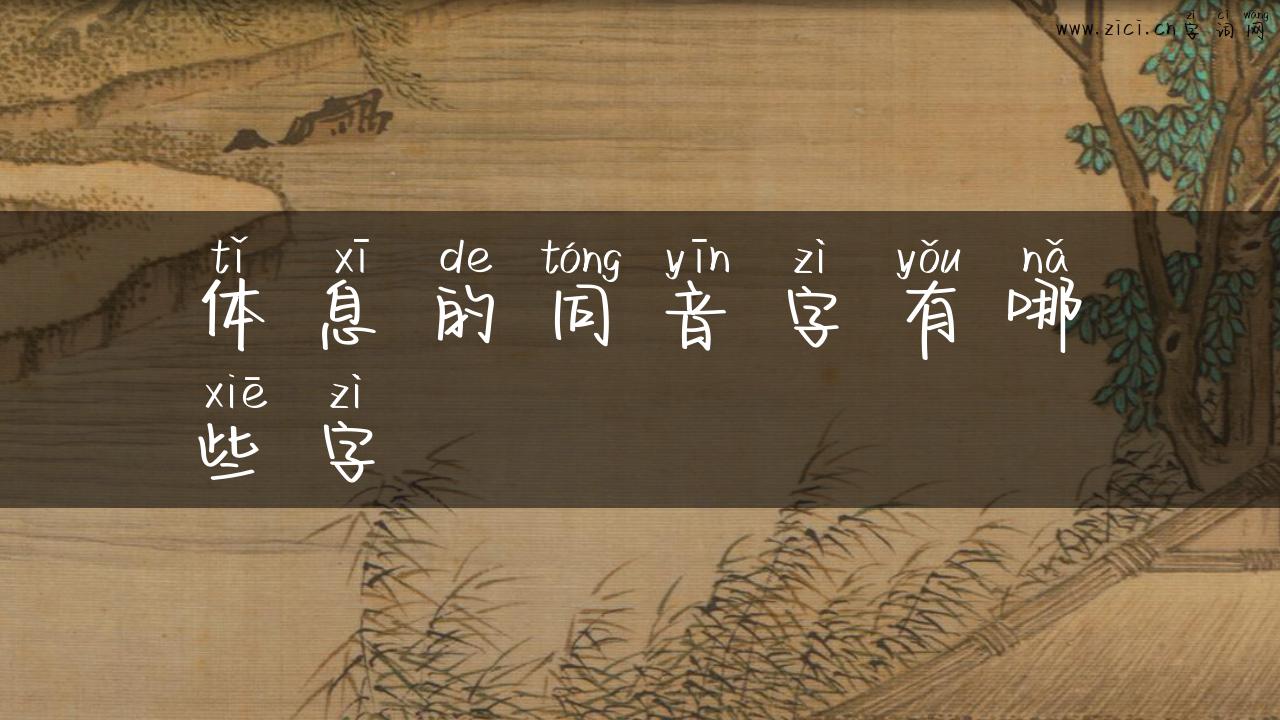 zì cí wǎng
www.zici.cn字词网
tǐ xī de tóng yīn zì yǒu nǎ
体息的同音字有哪
xiē zì
些字